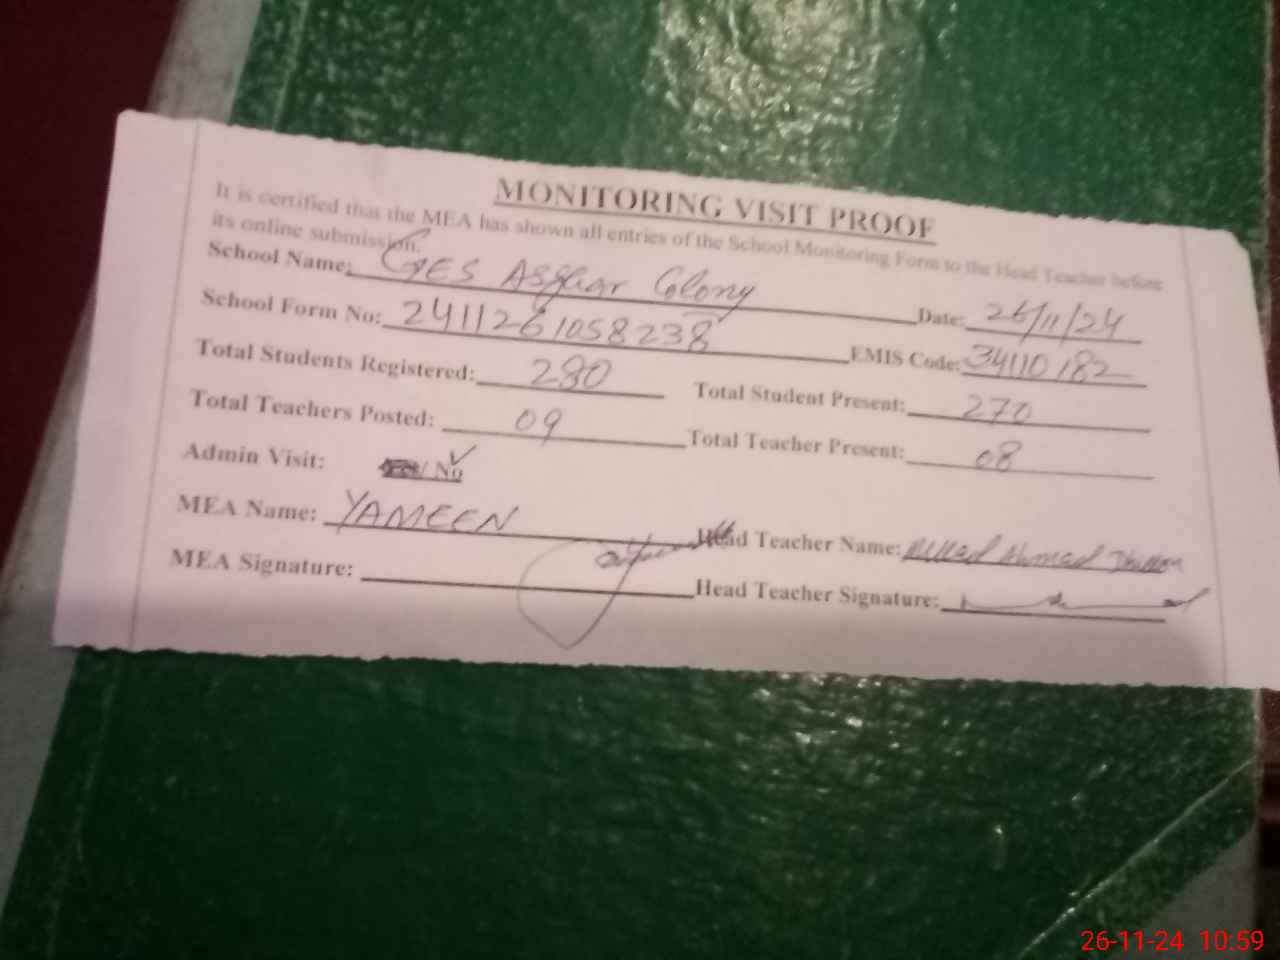 MONITORING VISIT PROOF
It is certified that the MEA has shown all entries of the School Monitoring Form to the Head Teacher before
its online submission.
School Name: GES Asghar Colony Date: 26/11/24
School Form No: 2411261058238 EMIS Code: 34110182
Total Students Registered: 280 Total Student Present: 270
Total Teachers Posted: 09 Total Teacher Present: 08
Admin Visit: Yes/ No ✓
MEA Name: YAMEEN Head Teacher Name: Ahmad
MEA Signature: Head Teacher Signature:
26-11-24 10:59